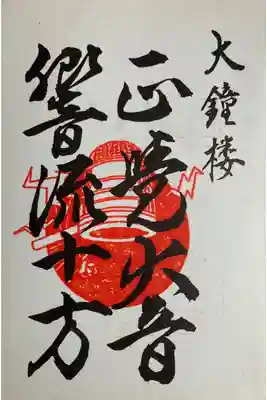 大鐘楼
正覚大音
響流十方